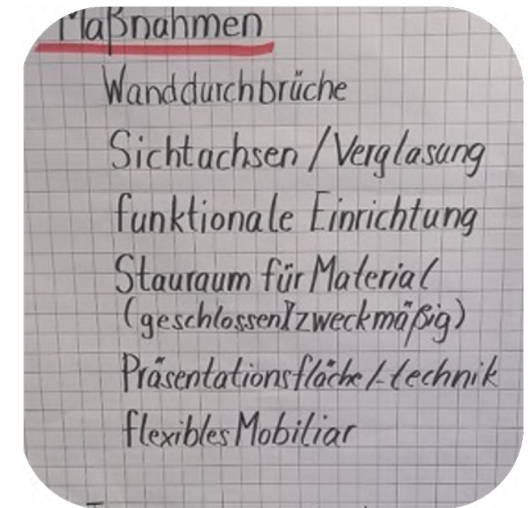 Maßnahmen
Wanddurchbrüche
Sichtachsen / Verglasung
funktionale Einrichtung
Stauraum für Material
(geschlossen/zweckmäßig)
Präsentationsfläche/-technik
flexibles Mobiliar